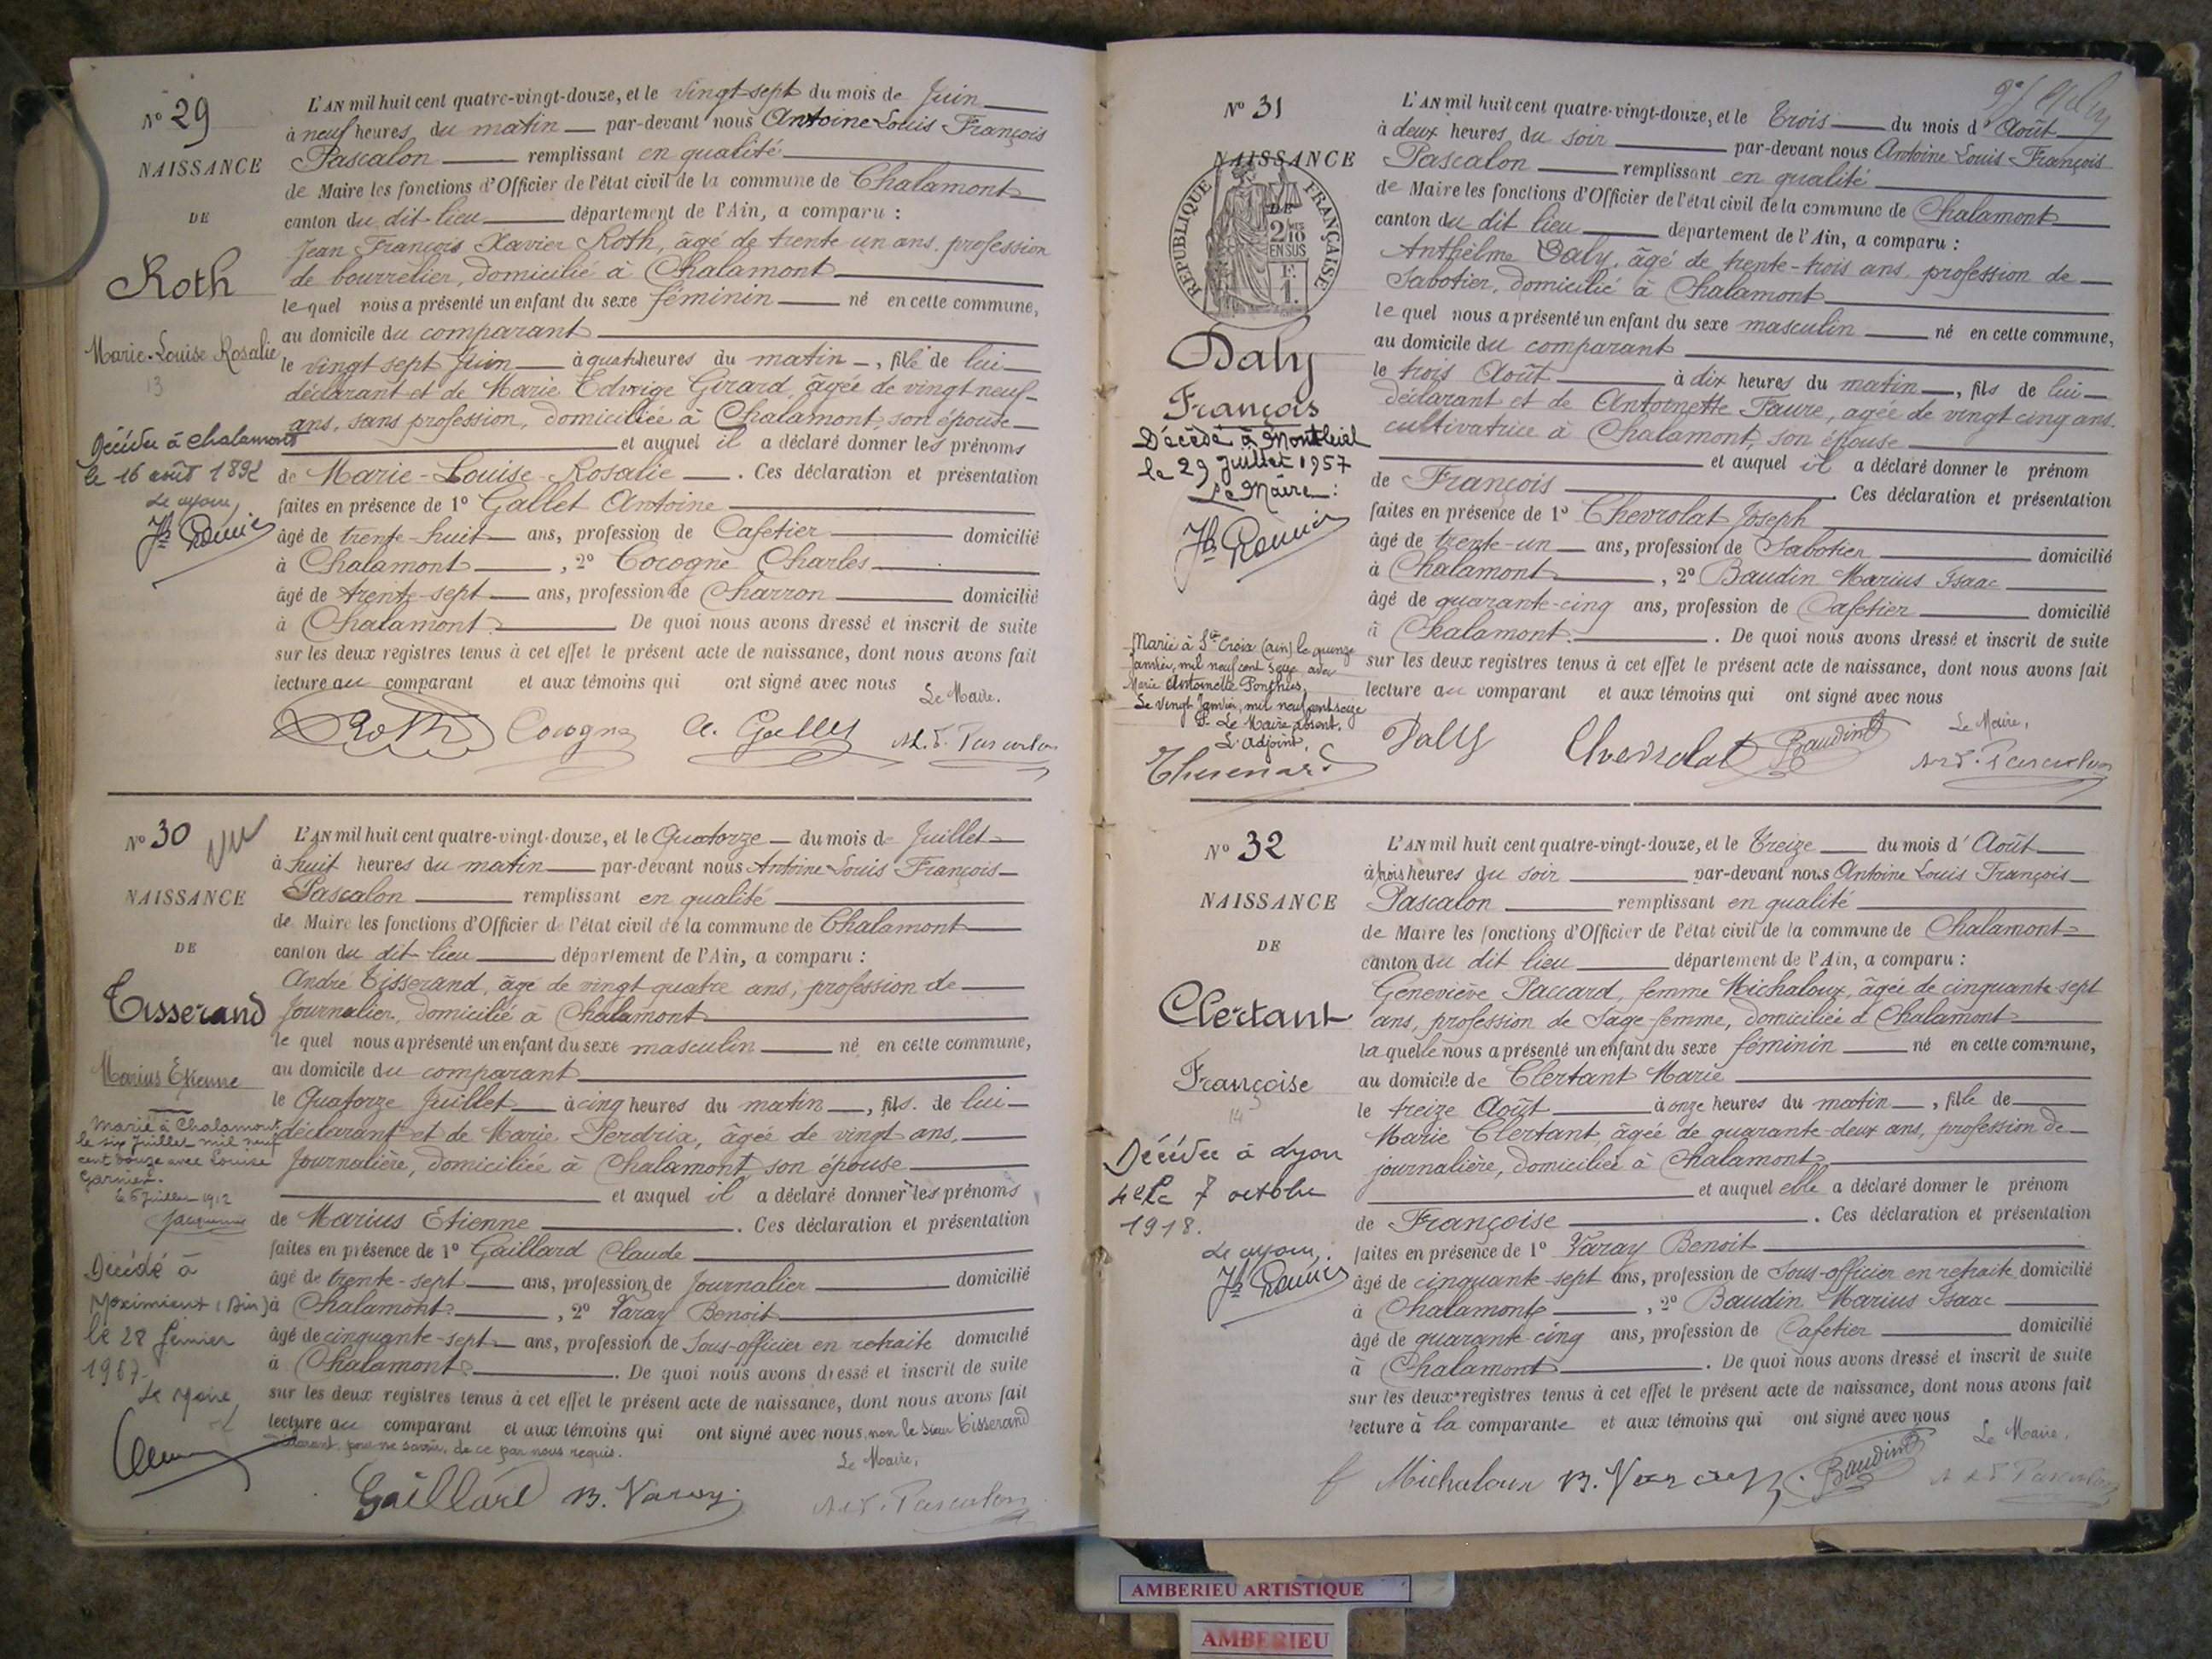 N° 29
NAISSANCE
DE
Roth
Marie-Louise Rosalie
13
Décédée à Chalamont
le 16 août 1892
Le Maire,
L'AN mil huit cent quatre-vingt-douze, et le vingt-sept du mois de Juin
à neuf heures du matin par-devant nous Antoine Louis François
Pascalon remplissant en qualité
de Maire les fonctions d'Officier de l'état civil de la commune de Chalamont
canton du dit-lieu département de l'Ain, a comparu :
Jean François Xavier Roth, âgé de trente un ans, profession
de bourrelier, domicilié à Chalamont
le quel nous a présenté un enfant du sexe féminin né en cette commune,
au domicile du comparant
le vingt sept Juin à quatre heures du matin, fille de lui
déclarant et de Marie Edwige Girard, âgée de vingt neuf
ans, sans profession, domiciliée à Chalamont, son épouse
et auquel il a déclaré donner les prénoms
de Marie-Louise Rosalie. Ces déclaration et présentation
faites en présence de 1° Gallet Antoine
âgé de trente-huit ans, profession de Cafetier domicilié
à Chalamont, 2° Cocogne Charles
âgé de trente-sept ans, profession de Charron domicilié
à Chalamont. De quoi nous avons dressé et inscrit de suite
sur les deux registres tenus à cet effet le présent acte de naissance, dont nous avons fait
lecture au comparant et aux témoins qui ont signé avec nous
Le Maire.
Roth Cocogne A. Gallet A.L.F. Pascalon
N° 30
vu
NAISSANCE
DE
Tisserand
Marius Etienne
Marié à Chalamont
le six Juillet mil neuf
cent douze avec Louise
Garnier.
le 6 Juillet 1912
Décédé à
Meximieux (Ain)
le 28 février
1967
Le Maire
L'AN mil huit cent quatre-vingt-douze, et le Quatorze du mois de Juillet
à huit heures du matin par-devant nous Antoine Louis François
Pascalon remplissant en qualité
de Maire les fonctions d'Officier de l'état civil de la commune de Chalamont
canton du dit-lieu département de l'Ain, a comparu :
André Tisserand, âgé de vingt quatre ans, profession de
Journalier, domicilié à Chalamont
le quel nous a présenté un enfant du sexe masculin né en cette commune,
au domicile du comparant
le Quatorze Juillet à cinq heures du matin, fils de lui
déclarant et de Marie Perdrix, âgée de vingt ans,
Journalière, domiciliée à Chalamont, son épouse
et auquel il a déclaré donner les prénoms
de Marius Etienne. Ces déclaration et présentation
faites en présence de 1° Gaillard Claude
âgé de trente-sept ans, profession de Journalier domicilié
à Chalamont, 2° Varay Benoit
âgé de cinquante-sept ans, profession de Sous-officier en retraite domicilié
à Chalamont. De quoi nous avons dressé et inscrit de suite
sur les deux registres tenus à cet effet le présent acte de naissance, dont nous avons fait
lecture au comparant et aux témoins qui ont signé avec nous, non le sieur Tisserand
déclarant pour ne savoir, de ce par nous requis.
Le Maire,
Gaillard B. Varay A.L.F. Pascalon
N° 31
NAISSANCE
DE
RÉPUBLIQUE FRANÇAISE
2/10 EN SUS
F. 1.
Daly
François
Décédé à Montluel
le 29 Juillet 1957
Le Maire :
Marié à Ste Croix (Ain) le quinze
Janvier, mil neuf cent seize avec
Marie Antoinette Ponthus.
Le vingt Janvier, mil neuf cent seize
P. Le Maire absent.
L'adjoint,
Thevenard
L'AN mil huit cent quatre-vingt-douze, et le Trois du mois d'Août
à deux heures du soir par-devant nous Antoine Louis François
Pascalon remplissant en qualité
de Maire les fonctions d'Officier de l'état civil de la commune de Chalamont
canton du dit lieu département de l'Ain, a comparu :
Anthelme Daly, âgé de trente-trois ans, profession de
Sabotier, domicilié à Chalamont
le quel nous a présenté un enfant du sexe masculin né en cette commune,
au domicile du comparant
le trois Août à dix heures du matin, fils de lui
déclarant et de Antoinette Faure, agée de vingt cinq ans.
cultivatrice à Chalamont, son épouse
et auquel il a déclaré donner le prénom
de François. Ces déclaration et présentation
faites en présence de 1° Chevrolat Joseph
âgé de trente-un ans, profession de Sabotier domicilié
à Chalamont, 2° Baudin Marius Isaac
âgé de quarante-cinq ans, profession de Cafetier domicilié
à Chalamont. De quoi nous avons dressé et inscrit de suite
sur les deux registres tenus à cet effet le présent acte de naissance, dont nous avons fait
lecture au comparant et aux témoins qui ont signé avec nous
Le Maire,
Daly Chevrolat Baudin A.L.F. Pascalon
N° 32
NAISSANCE
DE
Clertant
Françoise
14
Décédée à Lyon
4e le 7 octobre
1918.
Le Maire,
L'AN mil huit cent quatre-vingt-douze, et le Treize du mois d'Août
à trois heures du soir par-devant nous Antoine Louis François
Pascalon remplissant en qualité
de Maire les fonctions d'Officier de l'état civil de la commune de Chalamont
canton du dit lieu département de l'Ain, a comparu :
Geneviève Paccard, femme Michaloux, âgée de cinquante sept
ans, profession de Sage-femme, domiciliée à Chalamont
la quelle nous a présenté un enfant du sexe féminin né en cette commune,
au domicile de Clertant Marie
le treize Août à onze heures du matin, fille de
Marie Clertant, âgée de quarante-deux ans, profession de
journalière, domiciliée à Chalamont
et auquel elle a déclaré donner le prénom
de Françoise. Ces déclaration et présentation
faites en présence de 1° Varay Benoit
âgé de cinquante-sept ans, profession de Sous-officier en retraite domicilié
à Chalamont, 2° Baudin Marius Isaac
âgé de quarante-cinq ans, profession de Cafetier domicilié
à Chalamont. De quoi nous avons dressé et inscrit de suite
sur les deux registres tenus à cet effet le présent acte de naissance, dont nous avons fait
lecture à la comparante et aux témoins qui ont signé avec nous
Le Maire,
f Michaloux B. Varay Baudin A.L.F. Pascalon
AMBERIEU ARTISTIQUE
AMBERIEU